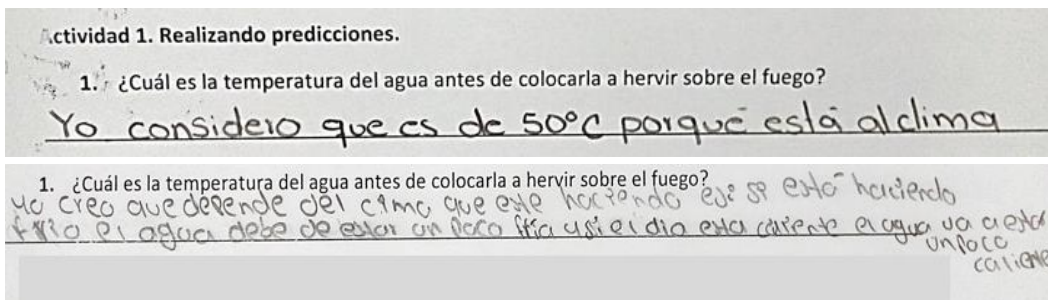 Actividad 1. Realizando predicciones.
1. ¿Cuál es la temperatura del agua antes de colocarla a hervir sobre el fuego?
Yo considero que es de 50°C porque está al clima
1. ¿Cuál es la temperatura del agua antes de colocarla a hervir sobre el fuego?
Yo creo que depende del clima que este haciendo eje si esta haciendo
frio el agua debe de estar un poco fria y si el dia esta caliente el agua va a estar
un poco
caliente